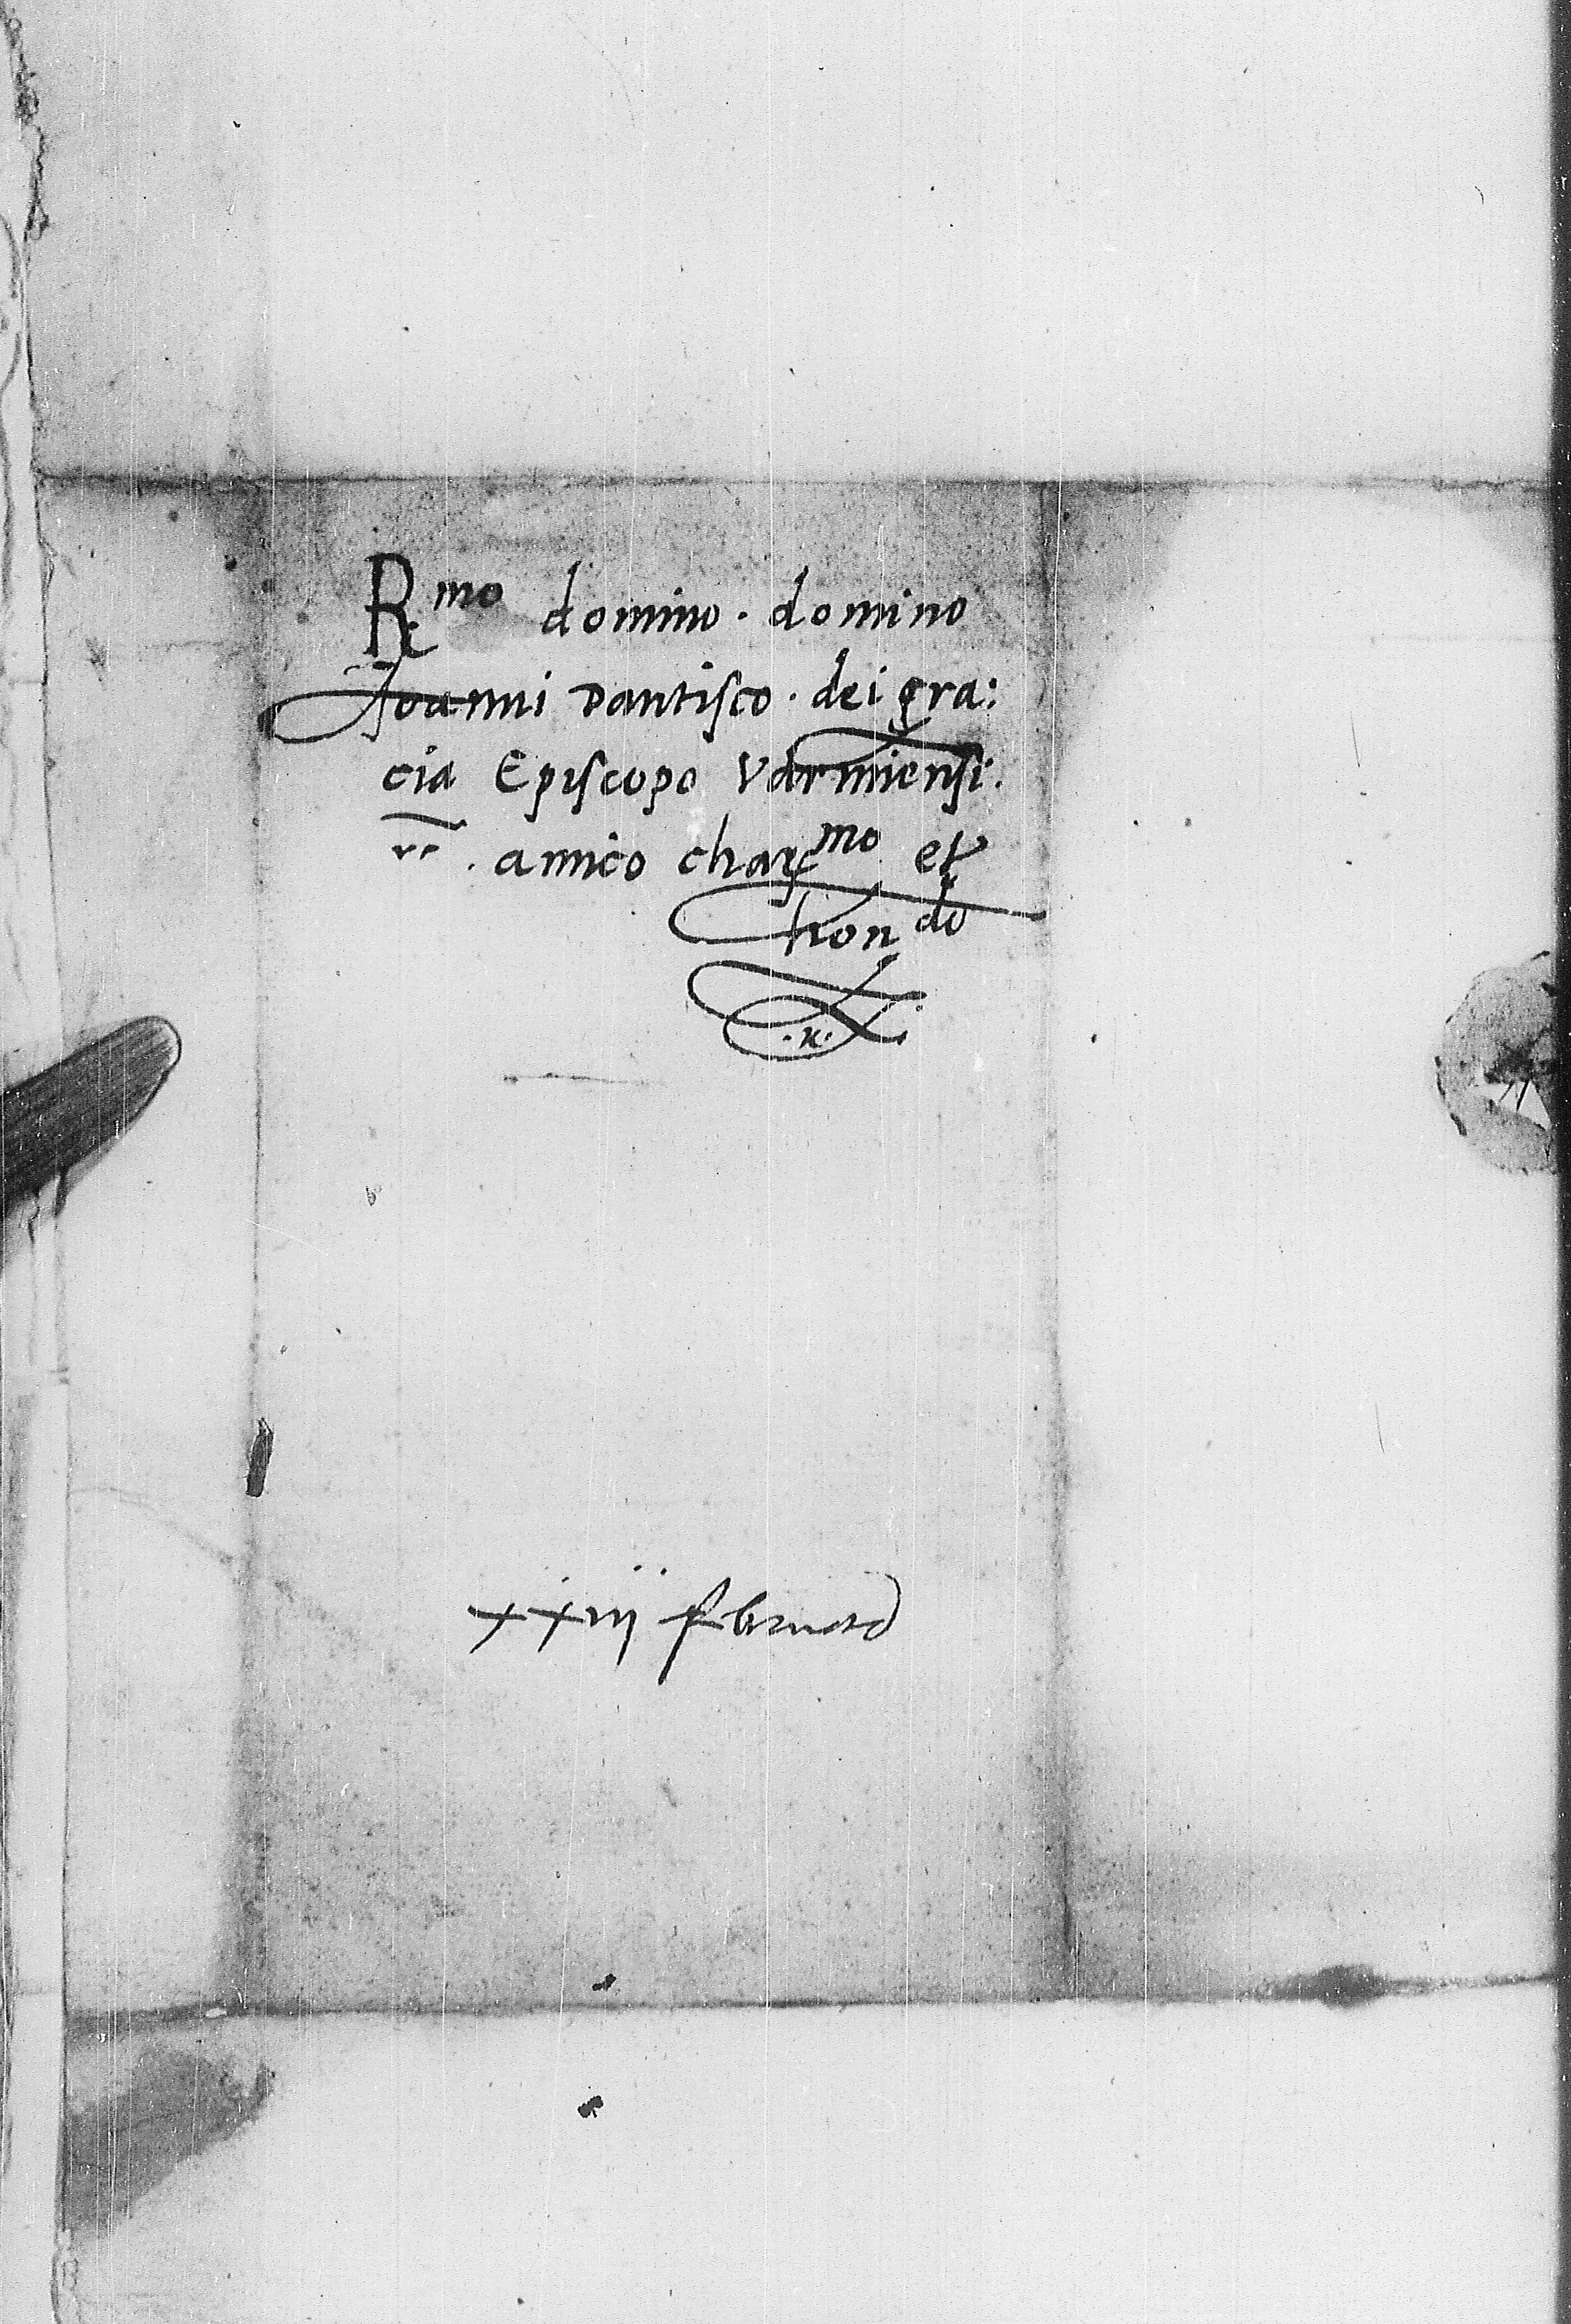 R.mo domino. domino
Joanni Dantisco. dei gra:
cia Episcopo Varmiensi.
amico charmo et
hondo
.K.
xxiij februarii